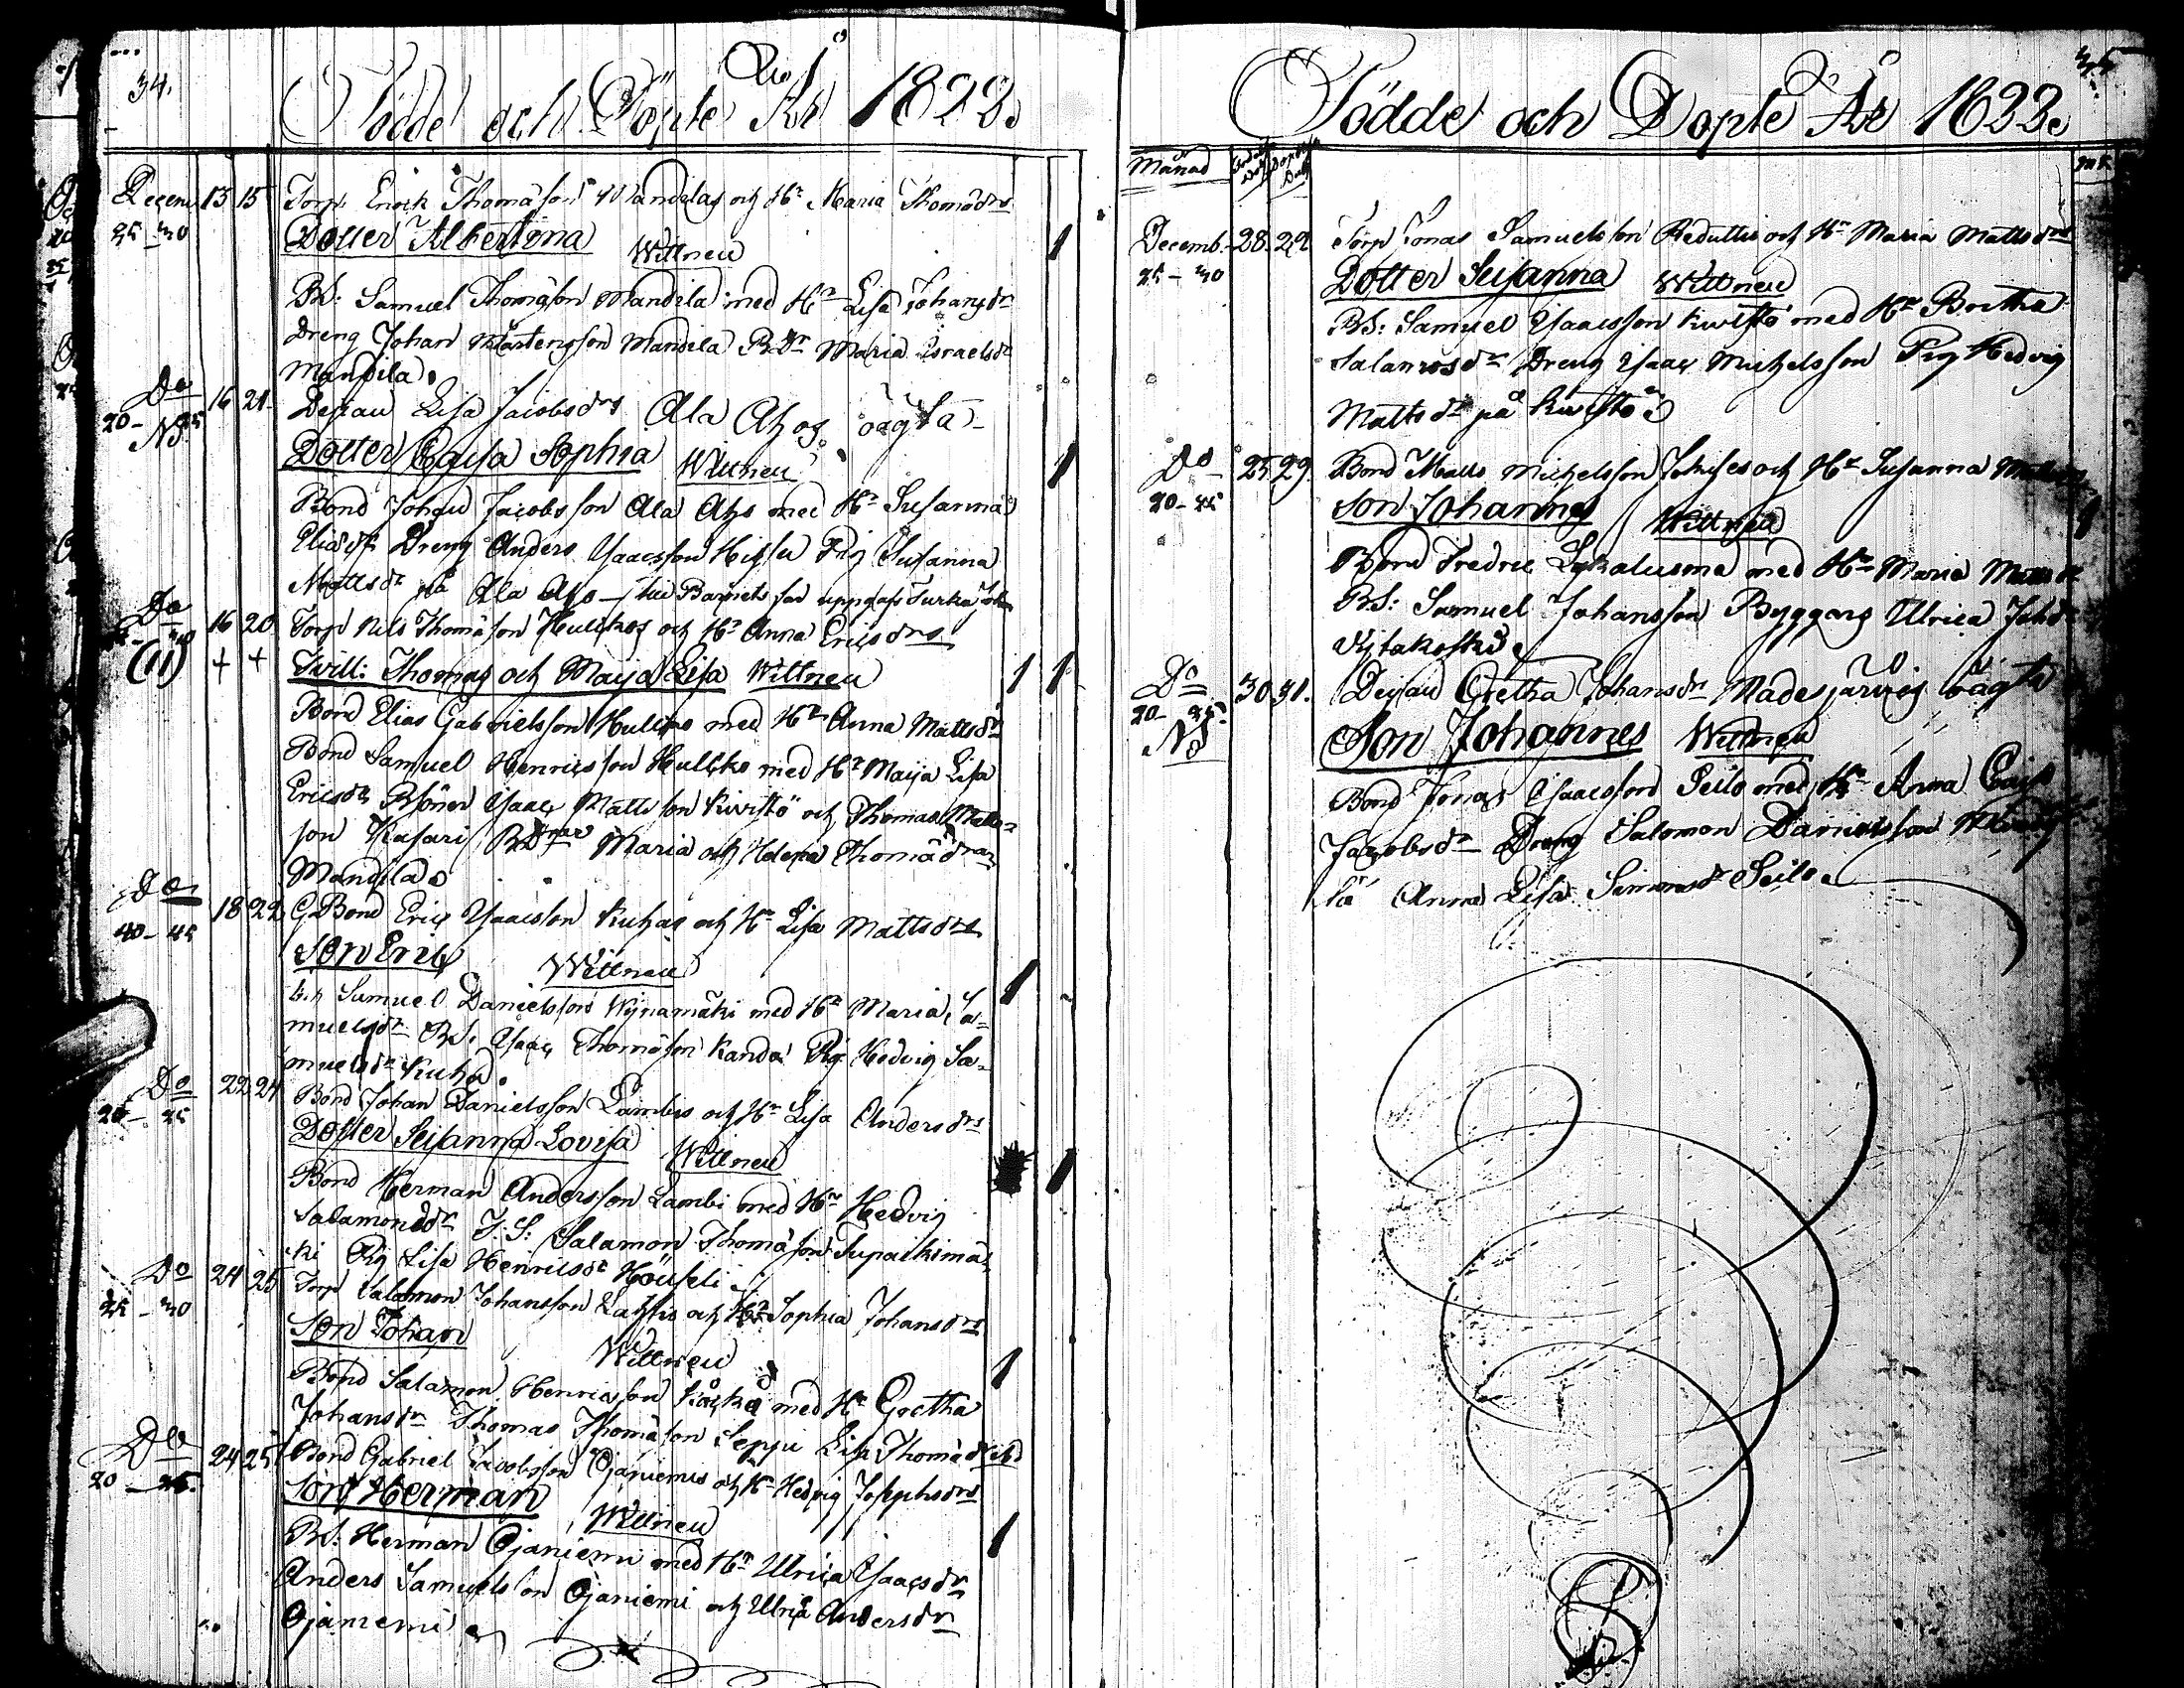 34.
Födde och Döpte År 1822.
Decem 13 15 Torp Enock Thomasson Mandilas och Hu Maria Thomædrs
25-30 Dotter Albertina Wittnen
BS: Samuel Thomasson Mandila med Hu Lisa Johansdr
Dreng Johan Mårtensson Mandila BDr Maria Israelsdr
Mandila.
Do 16 21 Dejan Lisa Jacobsdrs Ala Ahos oägta
20-25 Dotter Cajsa Sophia Wittnen
NB.
Bond Johan Jacobsson Ala Aho med Hu Susanna
Eliædr Dreng Anders Ysaacsson Pig Susanna
Mattsdr på Ala Aho - till Barnets far uppgafs Turka
Do 16 20 Torp Nils Thomasson Hulckos och Hu Anna Ericsdrs
(11) + + Tvill: Thomas och Maija Lisa Wittnen
Bond Elias Gabrielsson Hullko med Hu Anna Mattsdr
Bond Samuel Henricsson Hullcko med Hu Maija Lisa
Ericsdr BSöner Ysaac Mattsson Kivistö och Thomas Matts-
son Kasari BDrar Maria och Helena Thomædrar
Mandila.
Do 18 22 GBond Eric Ysaacsson Kuhas och Hu Lisa Mattsdrs
40-45 Son Eric Wittnen
Samuel Danielsson Wijnamäki med Hu Maria Sa-
muelsdr BS. Ysaac Thomasson Kanda Pig Hedvig Sa-
muelsdr Kuha.
Do 22 24 Bond Johan Danielsson Lambis och Hu Lisa Andersdrs
20-25 Dotter Susanna Lovisa Wittnen
Bond Herman Andersson Lambi med Hu Hedvig
Salamonsdr T.S: Salamon Thomasson Tupackimä-
ki Pig Lisa Henricsdr
Do 24 25 Torp Salomon Johansson Lahtis och Hu Sophia Johansdrs
25-30 Son Johan Wittnen
Bond Salamon Henricsson med Hu Gretha
Johansdr Thomas Thomasson Seppä Lisa Thomædr
Do 24 25 Bond Gabriel Jacobsson Ojaniemis och Hu Hedvig Josephsdrs
20-25 Son Herman Wittnen
BS: Herman Ojaniemi med Hu Ulrica Ysaacsdr
Anders Samuelsson Ojaniemi och Ulrica Andersdr
Ojaniemi
35
Födde och Döpte År 1822.
Månad
Decemb. 28. 29 Torp Jonas Samuelsson och Hu Maria Mattsdrs
25-30 Dotter Susanna Wittnen
BS: Samuel Ysaacsson Kivistö med Hu Bretha
Salamonsdr Dreng Ysaac Michelsson Pig Hedvig
Mattsdr på Kivistö
Do 25 29. Bond Matts Michelsson och Hu Susanna
20-25 Son Johannes Wittnen
Bond Fredric med Hu Maria Mattsdr
BS: Samuel Johansson Byggars Ulrica
Do 30 31. Dejan Gretha Johansdr Madesjärvis oägta
20-25 Son Johannes Wittnen
NB
Bond Jonas Ysaacsson Seilo med Hu Anna Cajsa
Jacobsdr Dreng Salomon Danielsson
Anna Lisa Simonsdr Seilo